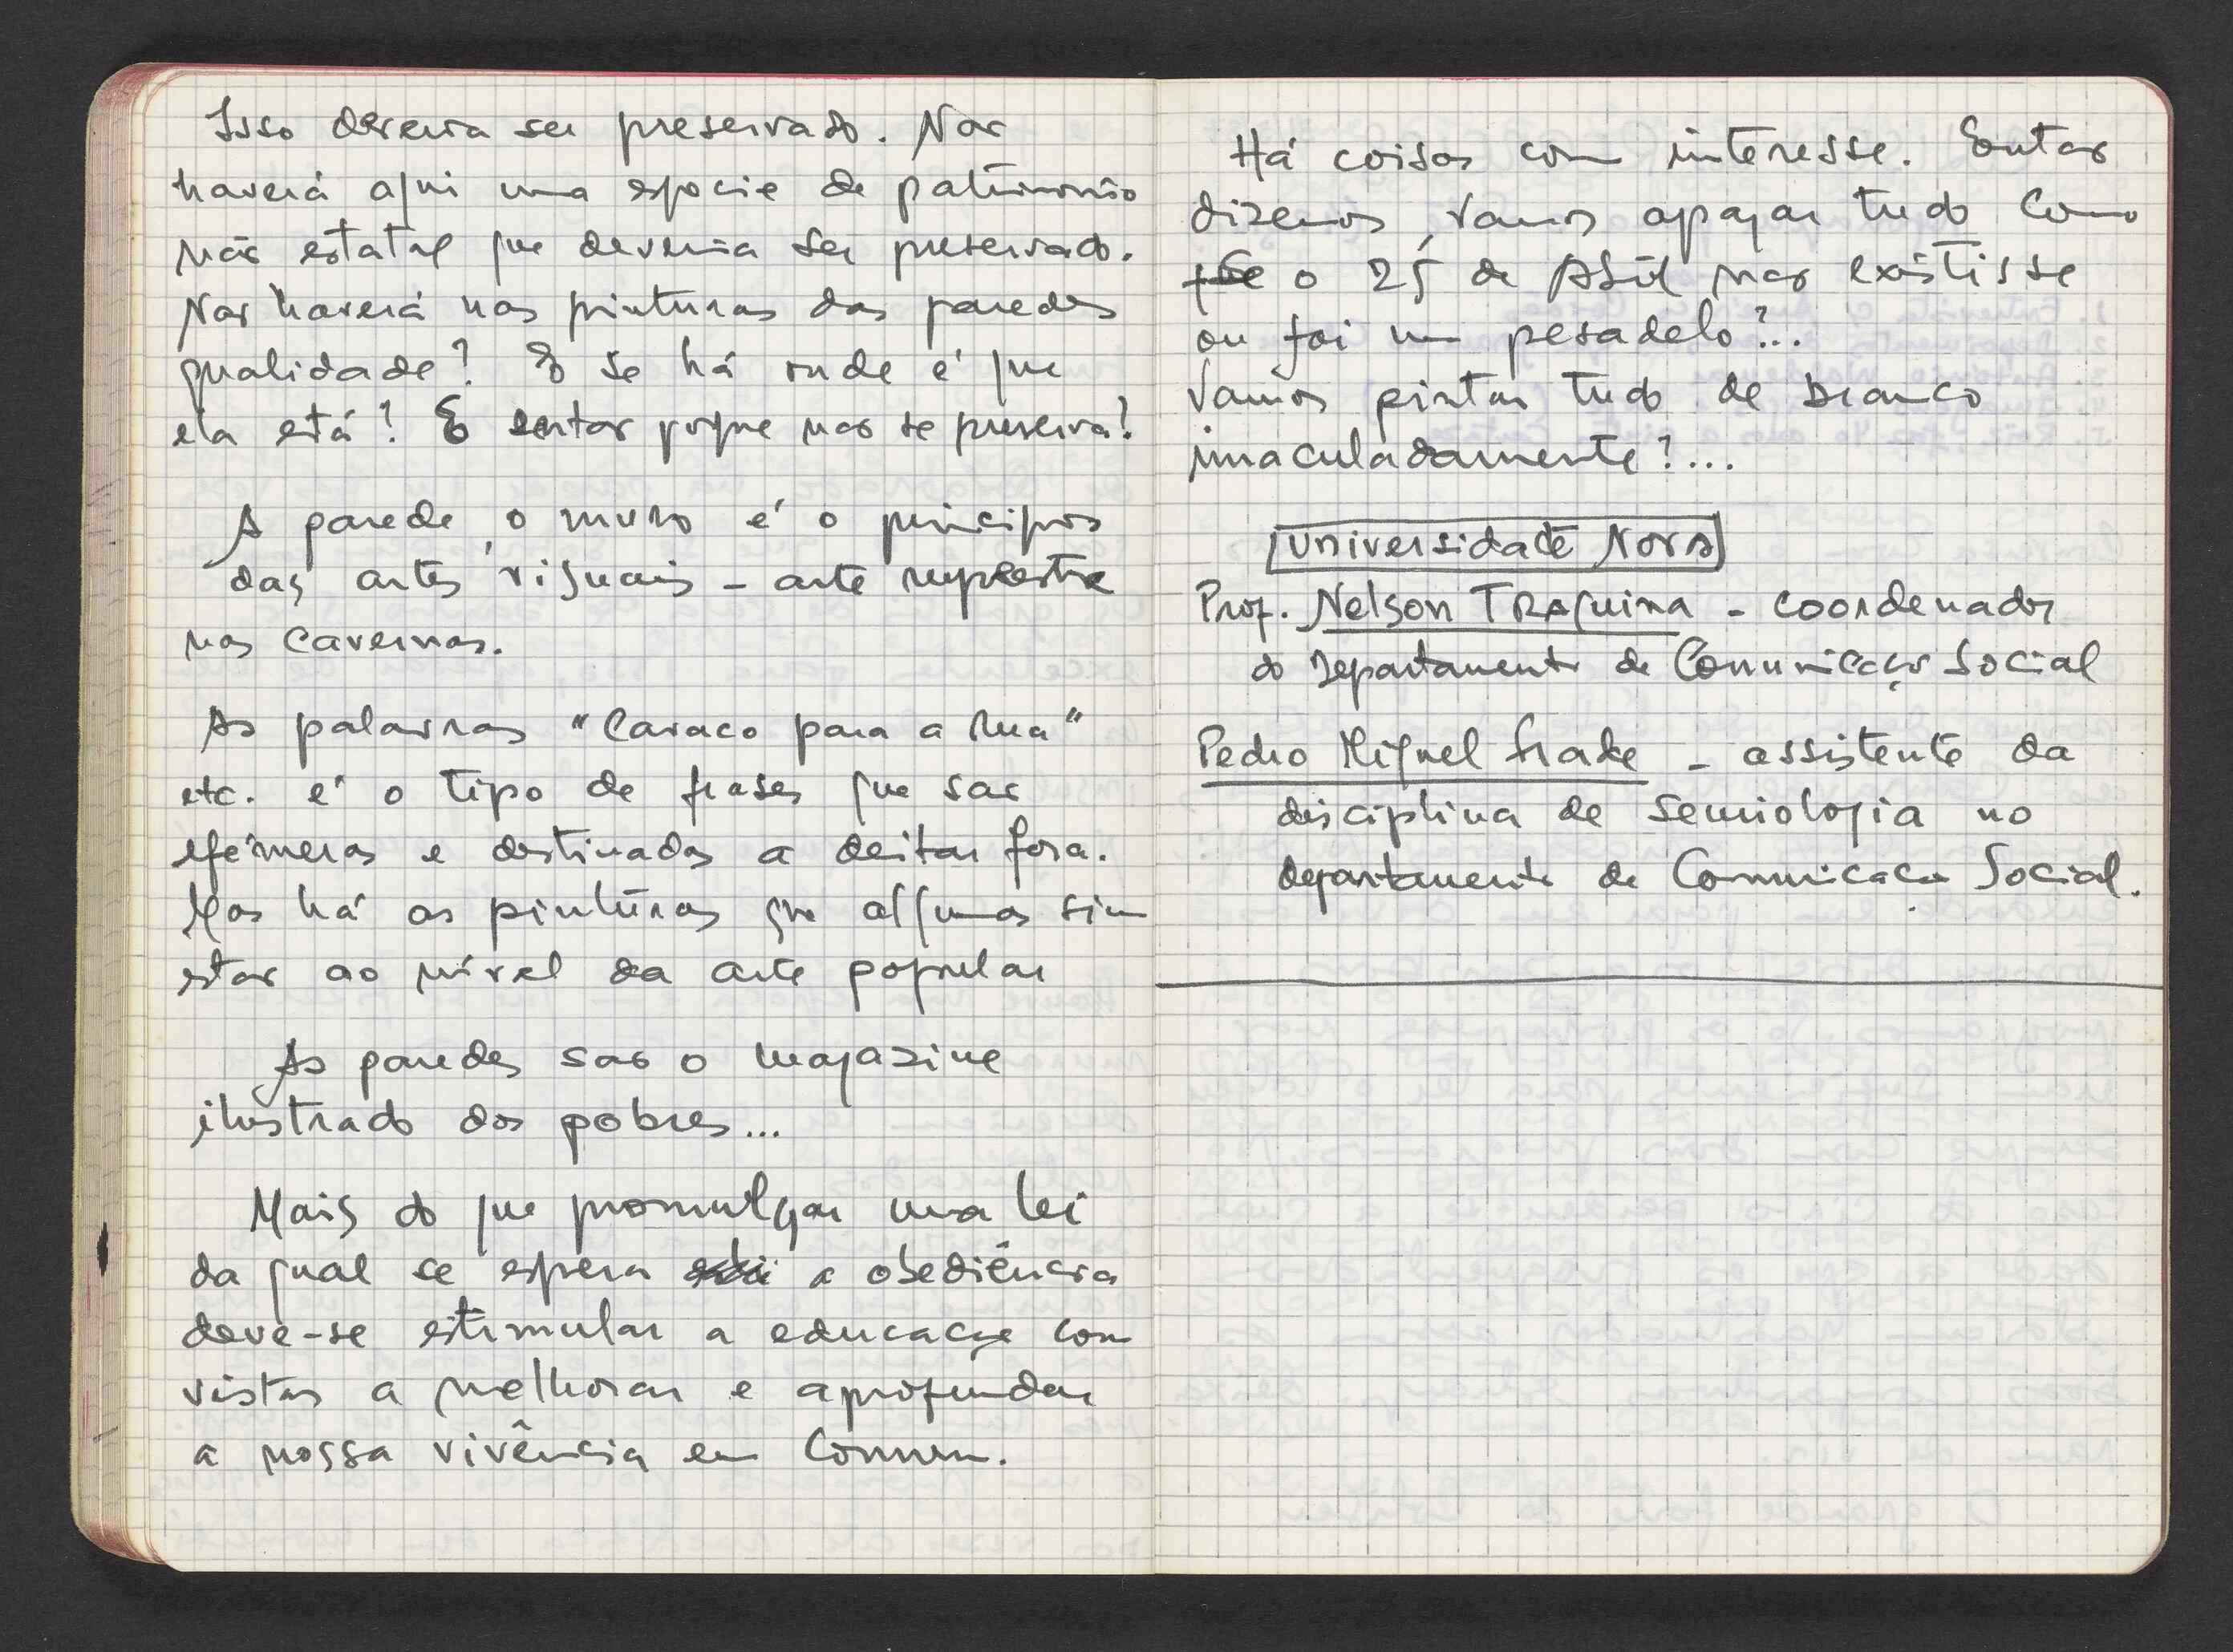 Isso deveria ser preservado. Não
haverá aqui uma espécie de património
não estatal que deveria ser preservado.
Não haverá nas pinturas das paredes
qualidade? E se há onde é que
ela está? E então porque não se preserva?
A parede, o muro é o princípio
das artes visuais - arte rupestre
nas cavernas.
As palavras "Cavaco para a rua"
etc. é o tipo de frases que são
efémeras e destinadas a deitar fora.
Mas há as pinturas que algumas sim
estão ao nível da arte popular
As paredes são o magazine
ilustrado dos pobres...
Mais do que promulgar uma lei
da qual se espera a obediência
deve-se estimular a educação com
vistas a melhorar e aprofundar
a nossa vivência em comum.
Há coisas com interesse. Então
dizemos, vamos apagar tudo como
se o 25 de Abril não existisse
ou foi um pesadelo?...
Vamos pintar tudo de branco
imaculadamente?...
Universidade Nova
Prof. Nelson Traquina - coordenador
do Departamento de Comunicação Social
Pedro Miguel - assistente da
disciplina de semiologia no
departamento de Comunicação Social.